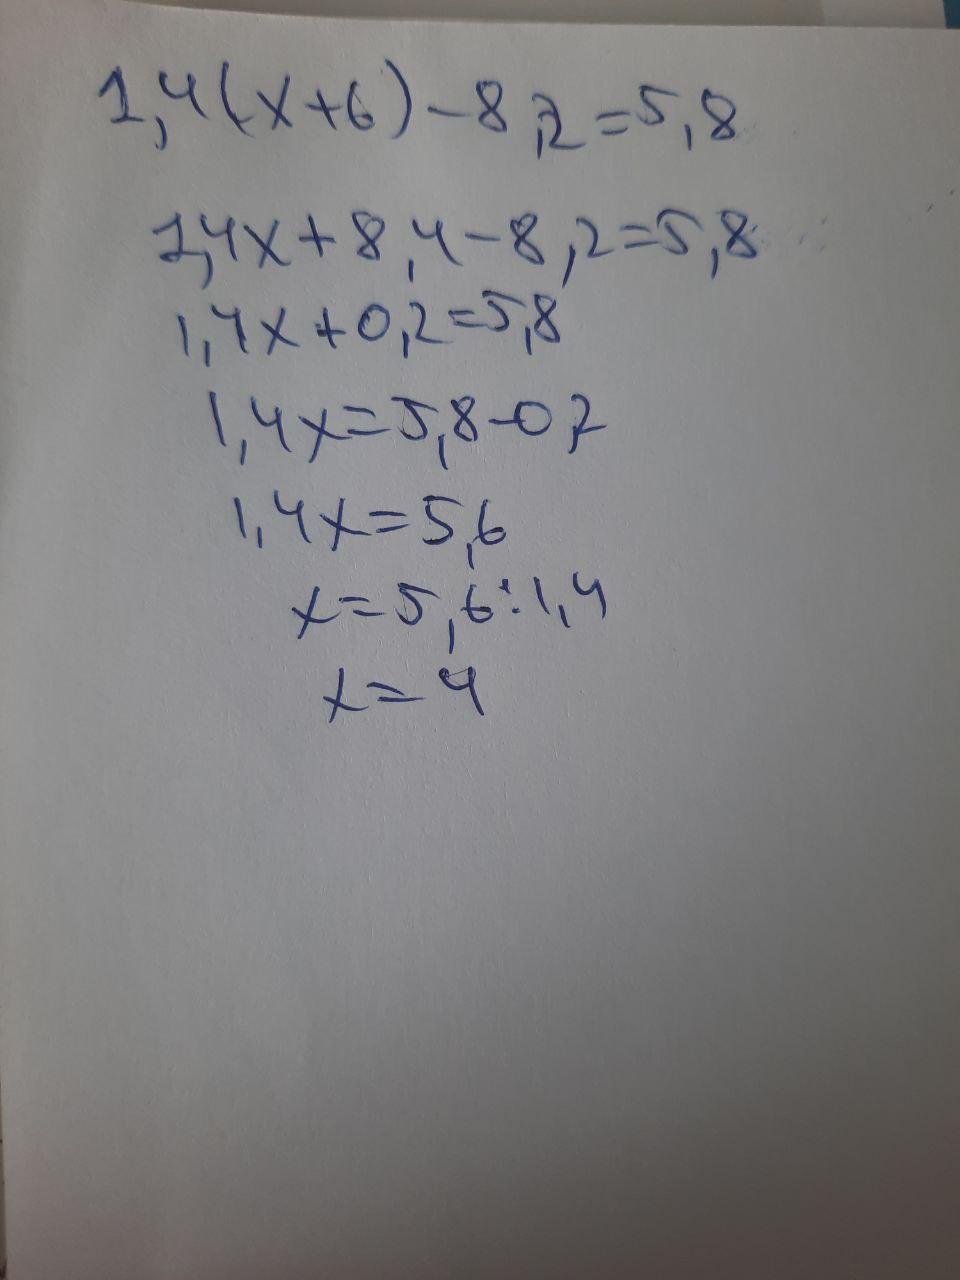 1,4(x+6)-8,2=5,8
1,4x+8,4-8,2=5,8
1,4x+0,2=5,8
1,4x=5,8-0,2
1,4x=5,6
x=5,6:1,4
x=4